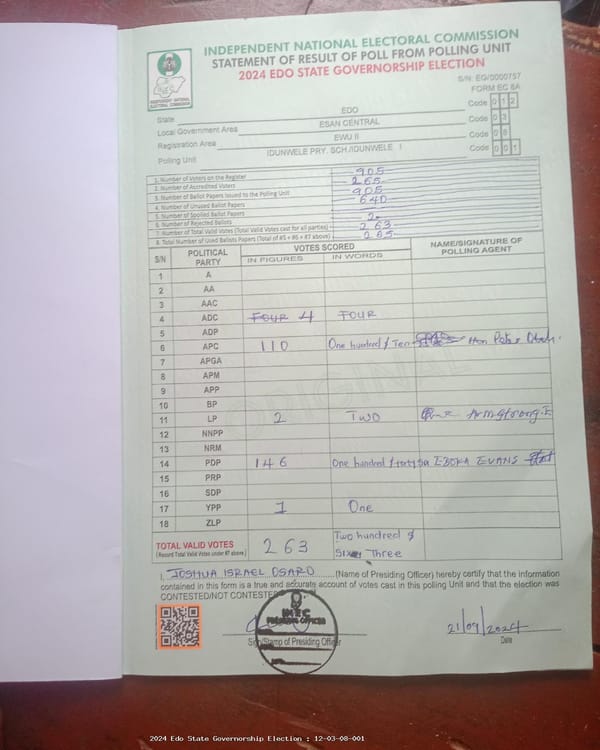 INDEPENDENT NATIONAL ELECTORAL COMMISSION
STATEMENT OF RESULT OF POLL FROM POLLING UNIT
2024 EDO STATE GOVERNORSHIP ELECTION
INEC
INDEPENDENT NATIONAL ELECTORAL COMMISSION
S/N: EG/0000757
FORM EC 8A
State EDO Code 0 1 2
Local Government Area ESAN CENTRAL Code 0 3
Registration Area EWU II Code 0 8
Polling Unit IDUNWELE PRY. SCH./IDUNWELE I Code 0 0 1
1. Number of Voters on the Register 905
2. Number of Accredited Voters 265
3. Number of Ballot Papers Issued to the Polling Unit 905
4. Number of Unused Ballot Papers 640
5. Number of Spoiled Ballot Papers
6. Number of Rejected Ballots 2
7. Number of Total Valid Votes (Total Valid Votes cast for all parties) 263
8. Total Number of Used Ballots Papers (Total of #5 + #6 + #7 above) 265
S/N POLITICAL PARTY VOTES SCORED NAME/SIGNATURE OF POLLING AGENT
IN FIGURES IN WORDS
1 A
2 AA
3 AAC
4 ADC FOUR 4 FOUR
5 ADP
6 APC 110 One hundred & Ten Hon Peter
7 APGA
8 APM
9 APP
10 BP
11 LP 2 TWO Armstrong.E
12 NNPP
13 NRM
14 PDP 146 One hundred & forty six EBOKA EVANS
15 PRP
16 SDP
17 YPP 1 One
18 ZLP
ORIGINAL
TOTAL VALID VOTES 263 Two hundred &
(Record Total Valid Votes under #7 above) Sixty Three
I, JOSHUA ISRAEL OSARO (Name of Presiding Officer) hereby certify that the information
contained in this form is a true and accurate account of votes cast in this polling Unit and that the election was
CONTESTED/NOT CONTESTED
INEC
PRESIDING OFFICER
21/09/2024
Sign/Stamp of Presiding Officer Date
2024 Edo State Governorship Election : 12-03-08-001